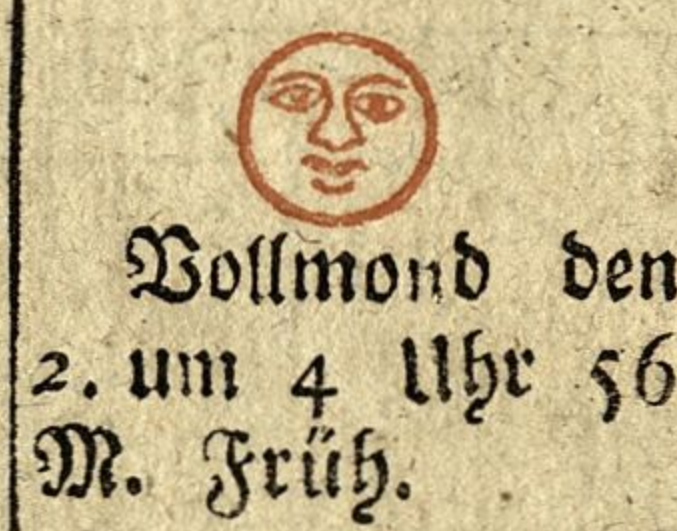 Vollmond den
2. um 4 Uhr 56
M. Früh.